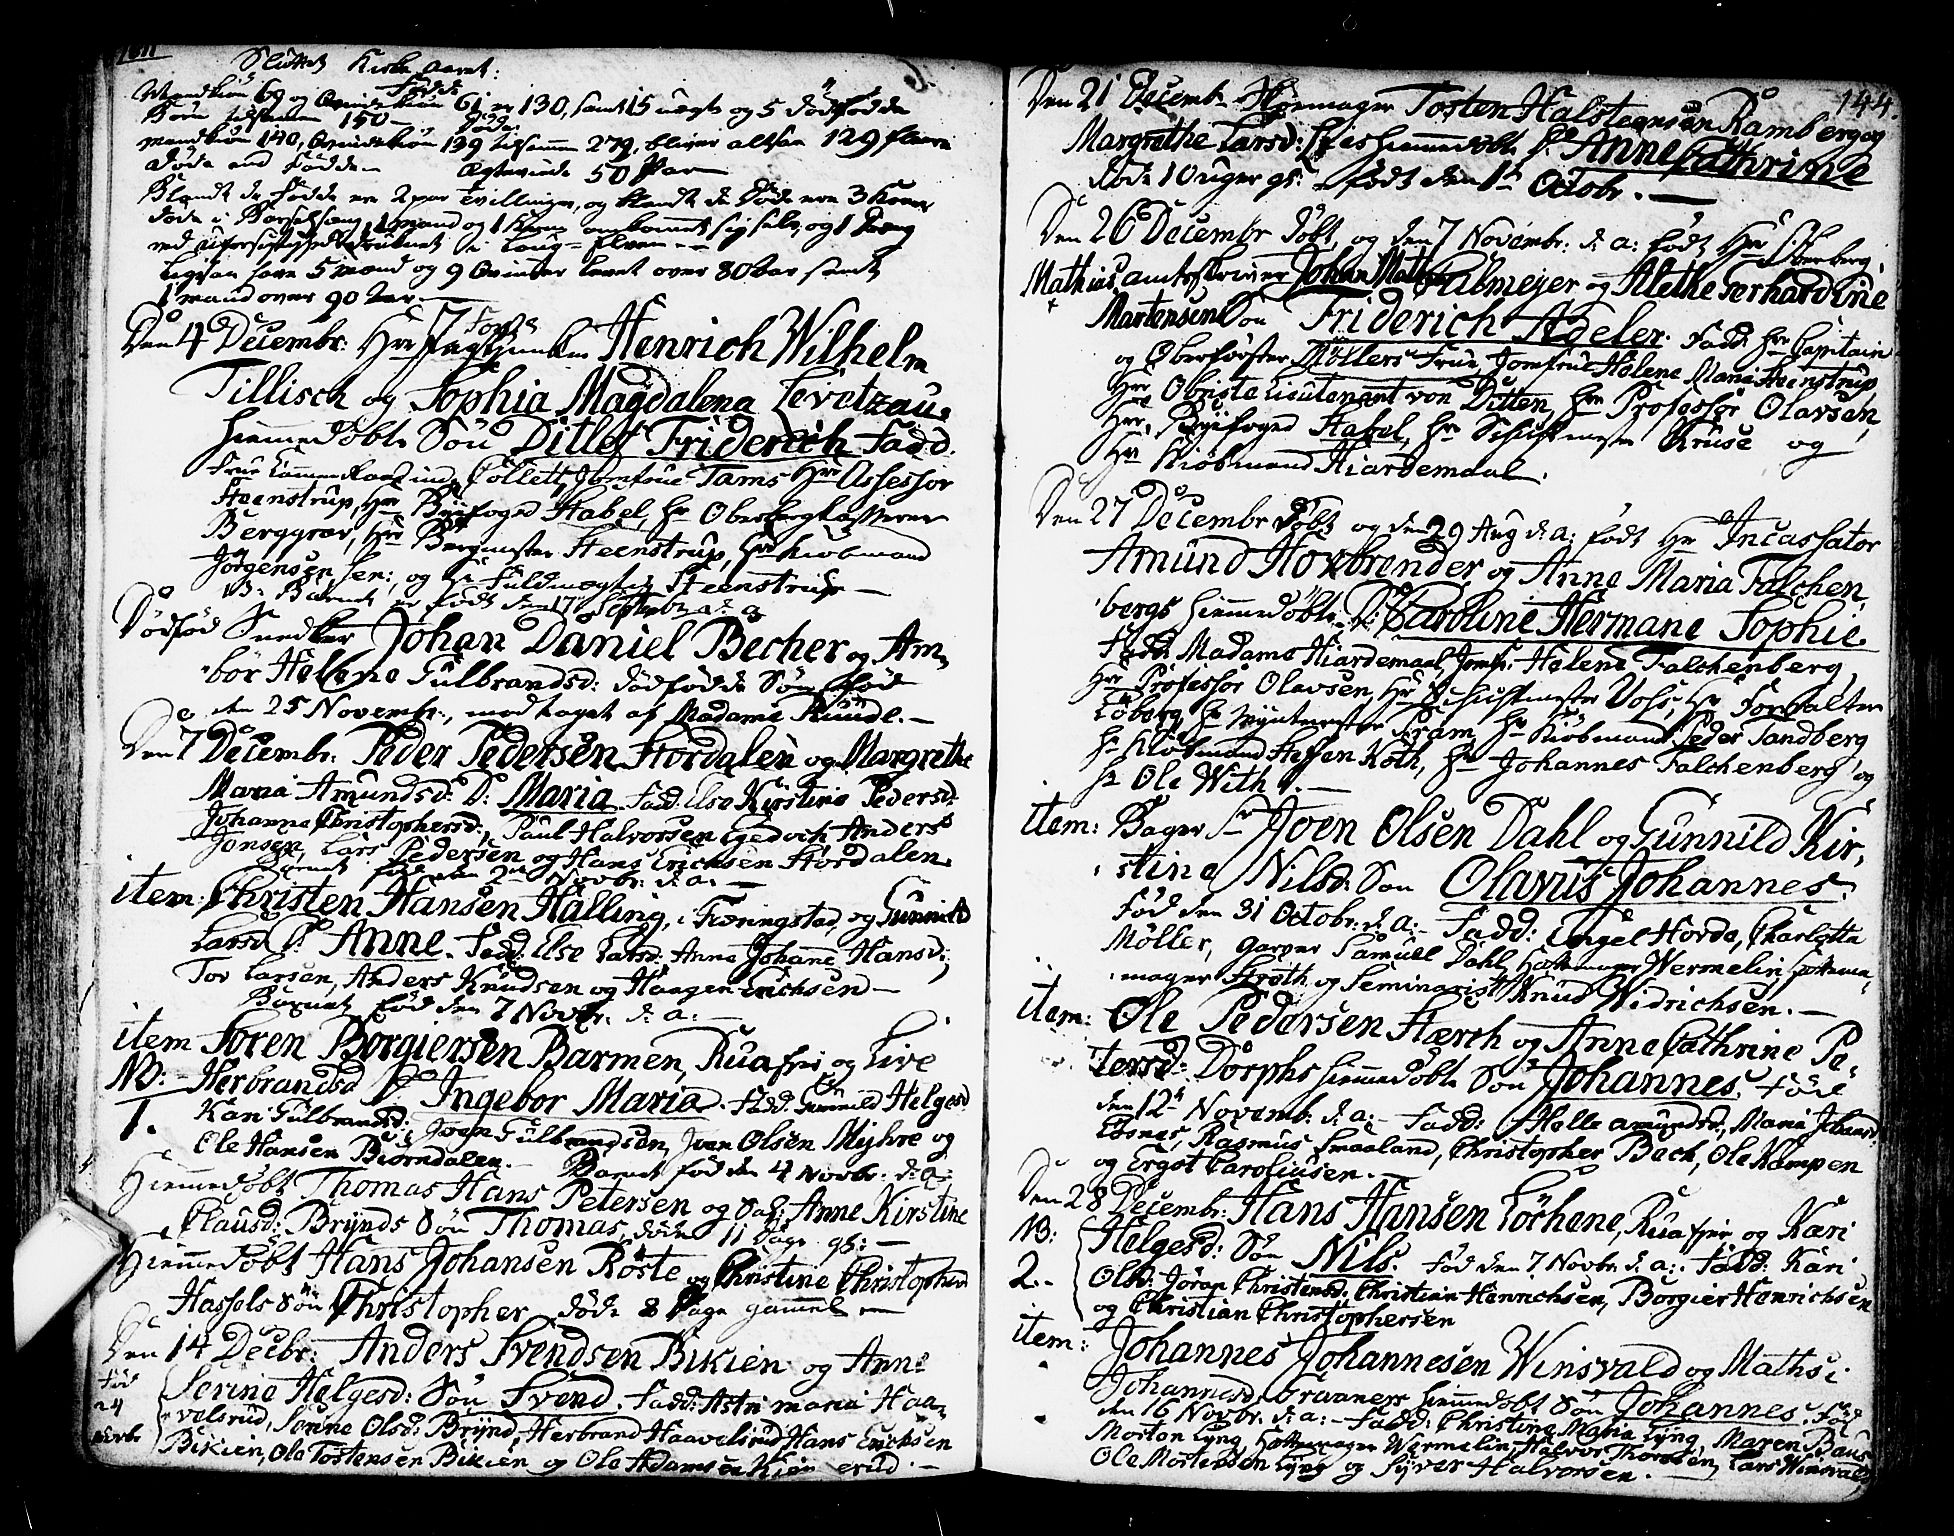 Sluttet Kirke aaret:
Mandkiön 69 og Qvindekiön 61 er 130, samt 15 uægte og 5 dödfödde
Börn tilsammen 150 — döde
mandkiön 140, Qvindekiön 139 tilsammen 279, bliver altsaa 129 fleere
döde end födde — Ægteviede 50 Par —
Blandt de födde ere 2 par Tvillinger, og blandt de döde ere 3 Koner
döde i Barselseng, 1 mand og 1 omkommet sig selv, og 1 Dreng
ved uforsigtighed druknet i Laug-Elven —
Ligesaa have 5 mænd og 9 Qvinder levet over 80 Aar samt
1 mand over 90 Aar. —
Den 4 Decembr: Hrr Jagtjunker Henrich Wilhelm
Tillisch og Sophia Magdalena Levetzau,
hiemmedöbte Sön Ditlef Friderich Fadd.
Frue Cammerraadinde Collett, Jomfrue Tams Hrr Assessor
Steenstrup, Hrr Byefoged Stabel, Hr Oberbergkasserer
Berggrav, Hrr Bergmester Steenstrup, Hr Kiöbmand
Jörgensen sen:, og Hr Fuldmægtig Steenstrup —
NB: Barnet er födt den 17 Septembr a: a
Dödfod Snedker Johan Daniel Becher og Am-
bor Helene Gulbrandsd: dödfödde Sön föd
den 25 Novembr., modtaget af Madame Ruud. —
Den 7 Decembr: Peder Pedersen Hordalen og Margrethe
Maria Amundsd: D: Maria. Fadd: Else Kirstine Pedersd:
Johanne Christophersd:, Paul Halvorsen Eged och Anders
Jonsen, Lars Pedersen og Hans Erichsen Hordalen
Barnet föd den 2den Novbr: d: a: —
item: Christen Hansen Halling, i Færingstad, og Gunnild
Larsd D: Anne. Fadd: Else Larsd: Anne Johane Hansd:,
Tor Larsen, Anders Knudsen og Haagen Erichsen —
Barnet föd den 7 Novbr: d: a: —
item Soren Borgiersen Barmen, Rua frie og Live
NB: — Herbrandsd D: Ingebor Maria. Fadd: Gunnild Helgesd
1. Kari Gulbrandsd: Joen Gulbrandsen, Joen Olsen Myhre og
Ole Hansen Biorndalen. — Barnet föd den 4 Novbr: d: a:
Hiemmedöbt Thomas Hans Petersen og Anne Kirstine
Clausd: Brynds Sön Thomas, döde 11 Dage gl: —
Hiemmedöbt Hans Johansen Röste og Christine Christophersd
Hassels Sön Christopher döde 8 Dage gammel —
Den 14 Decbr: Anders Svendsen Bikien og Anne
Föd Serine Helgesd: Sön Svend. Fadd: Astri maria Haa-
24 velsrud, Sonne Olsd: Brynd, Herbrand Haavelsrud, Hans Erichsen
Novbr Bikien, Ole Tostensen Bikien og Ole Adamsen Kien erud. —
144.
Den 21 Decemb. Tosten Halsteensen Ramberg og
Margrethe Larsd: hiemmedöbte D: Anne Cathrine
döde 10 uger gl: — födt den 1te Octobr. —
Den 26 Decembr döbt, og den 7 Novembr: d: a: födt Hrr Oberberg-
Mathias amtsskriver Johan Calmeyer og Alethe Gerhardine
Martensen Sön Friderich Adeler. Fadd: Hrr Capitain
og Oberförster Möllers Frue, Jomfrue Helene Maria Steenstrup
Hrr Obriste Lieutenant von Ditten, Hrr Professor Olavsen,
Hrr Byefoged Stabel, Hr Schiktmester Kruse og
Hr Kiöbmand Hiardemaal.
Den 27 Decembr döbt og den 29 Aug d: a: födt Hr Incassator
Amund Hoxbrender og Anne Maria Falchen-
bergs hiemmedöbte D: Caroline Hermane Sophie.
Fadd: Madame Hiardemaal, Jomfr: Helene Falchenberg,
Hr Professor Olavsen, Hr Schiktmester Vohs, Hr Forvalter
Löberg, Hr Myntmester Pram, Hr Kiöbmand Peder Sandberg,
Hr Kiöbmand Steffen Koth, Hr Johannes Falchenberg, og
Hr Ole With. —
item: Bager Sr Joen Olsen Dahl og Gunnild Kir-
stine Nilsd: Sön Olavus Johannes.
Föd den 31 Octobr: d: a: — Fadd: Engel Horde, Charlotta
Möller, garver Samuel Dahl, Hattemager Wermelin, Hattema-
mager Stroth og Seminarist Knud Widrichsen. —
item: Ole Pedersen Stærch og Anne Cathrine Pe-
tersd: Dorphs hiemmedöbte Sön Johannes. Föd
den 12te Novemb: d: a: — Fadd: Helle amundsd:, Maria Johansd
Ebsnes, Rasmus Smaaland, Christopher Bach, Ole Kampen
og Ergot Caroliusen. —
Den 28 Decembr: Hans Hansen Lörhene, Rua frie, og Kari
NB: Helgesd: Sön Nils. Föd den 7 Novbr: d: a: Fadd: Kari
2. — Olsd: Joran Christensd: Christian Henrichsen, Borgier Henrichsen
og Christian Christophersen
item: Johannes Johannesen Winsvald og Mathsi
Johannesd: Gravaners hiemmedöbt Sön Johannes. Föd
den 16 Novbr: d: a: — Fadd: Christine Maria Lyng, Maren Baus
Morten Lyng Hattemager Wermelin, Halvor Thorsen, Lars Winsvald
Ole Mortensen Lyng og Syver Halvorsen. —